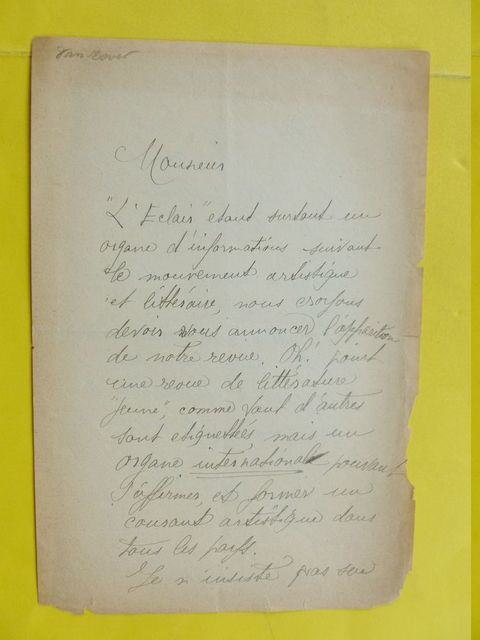 Monsieur
"L'Eclair" étant surtout un
organe d'informations suivant
le mouvement artistique
et littéraire, nous croyons
devoir vous annoncer l'apparition
de notre revue. Oh! point
une revue de littérature
"jeune", comme tant d'autres
sont etiquettées, mais un
organe international pouvant
s'affirmer, et former un
courant artistique dans
tous les pays.
Je n'insiste pas sur